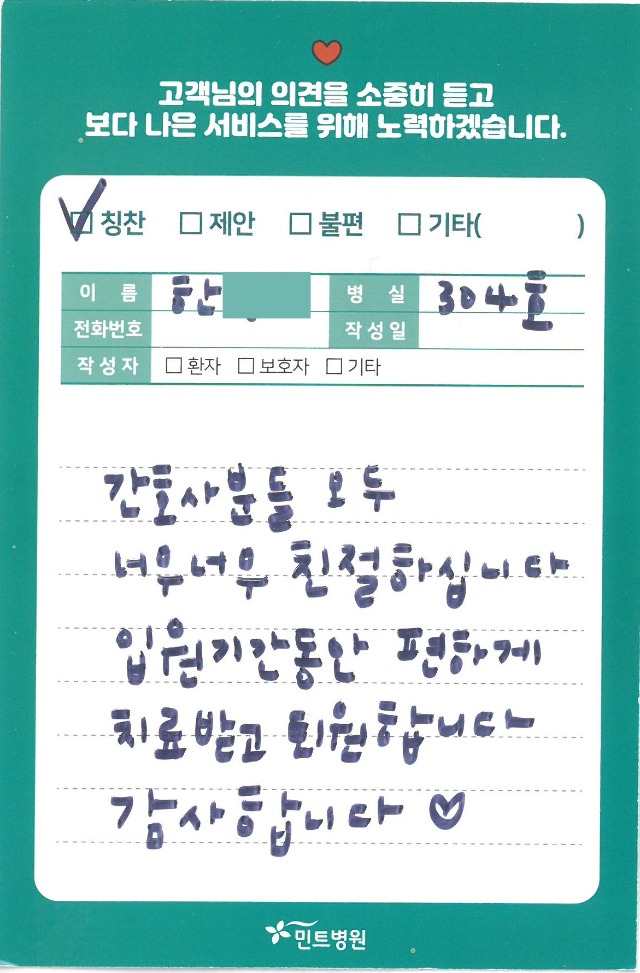 고객님의 의견을 소중히 듣고
보다 나은 서비스를 위해 노력하겠습니다.
☑ 칭찬 □ 제안 □ 불편 □ 기타( )
이 름 한 병 실 304호
전화번호 작성일
작성자 □ 환자 □ 보호자 □ 기타
간호사분들 모두
너무너무 친절하십니다
입원기간동안 편하게
치료받고 퇴원합니다
감사합니다 ♡
민트병원